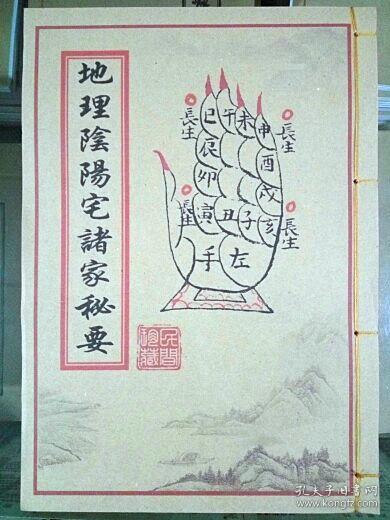 地理陰陽宅諸家秘要
巳 午 未 申
辰 酉
卯 戌
寅 丑 子 亥
左手
長生
長生
長生
長生
民間珍藏
孔夫子旧书网
www.kongfz.com